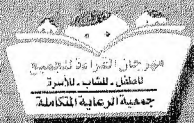 مهرجان القراءة للجميع
للطفل .. للشاب .. للأسرة
جمعية الرعاية المتكاملة